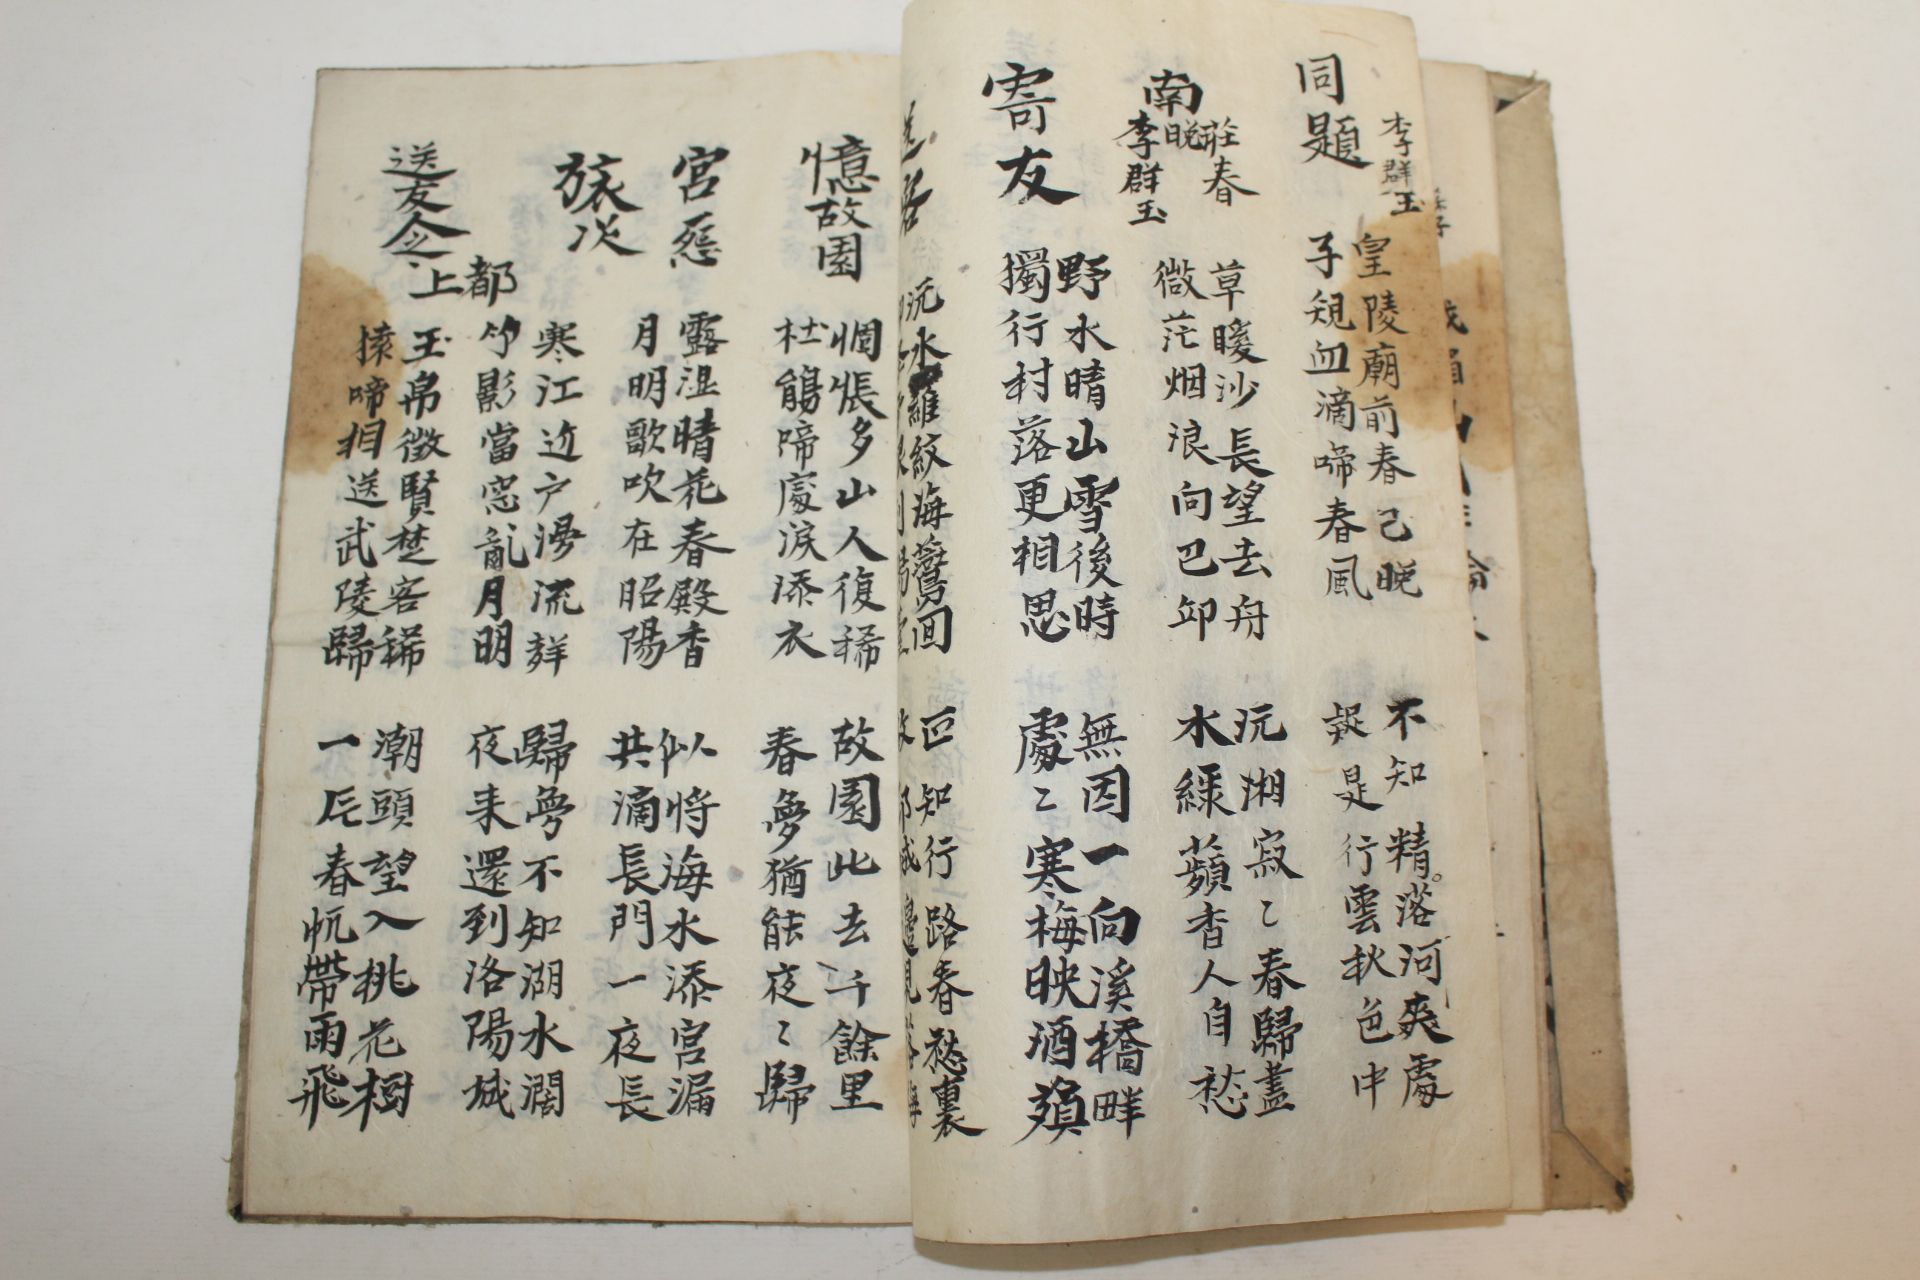 同題
李群玉
皇陵廟前春已晚
子規血滴啼春風
不知精落河爽處
疑是行雲秋色中
南莊春晚
李群玉
草暖沙長望去舟
微茫烟浪向巴邱
沅湘寂々春歸盡
水綠蘋香人自愁
寄友
野水晴山雪後時
獨行村落更相思
無因一向溪橋畔
處々寒梅映酒
沅水羅紋海鷰回
知行路春愁裏
憶故園
惆悵多山人復稀
杜鵑啼處淚添衣
故園此去千餘里
春夢猶能夜々歸
宮怨
露湿晴花春殿香
月明歌吹在昭陽
似將海水添宮漏
共滴長門一夜長
旅次
寒江近户漫流
竹影當窓亂月明
歸夢不知湖水濶
夜来還到洛陽城
送友人之上都
玉帛徵賢楚客稀
猿啼相送武陵歸
潮頭望入桃花樹
一片春帆帶雨飛